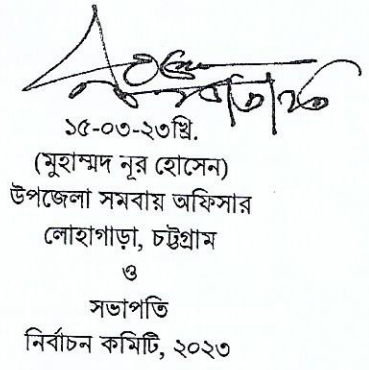 ১৫-০৩-২৩খ্রি.
(মুহাম্মদ নূর হোসেন)
উপজেলা সমবায় অফিসার
লোহাগাড়া, চট্টগ্রাম
ও
সভাপতি
নির্বাচন কমিটি, ২০২৩